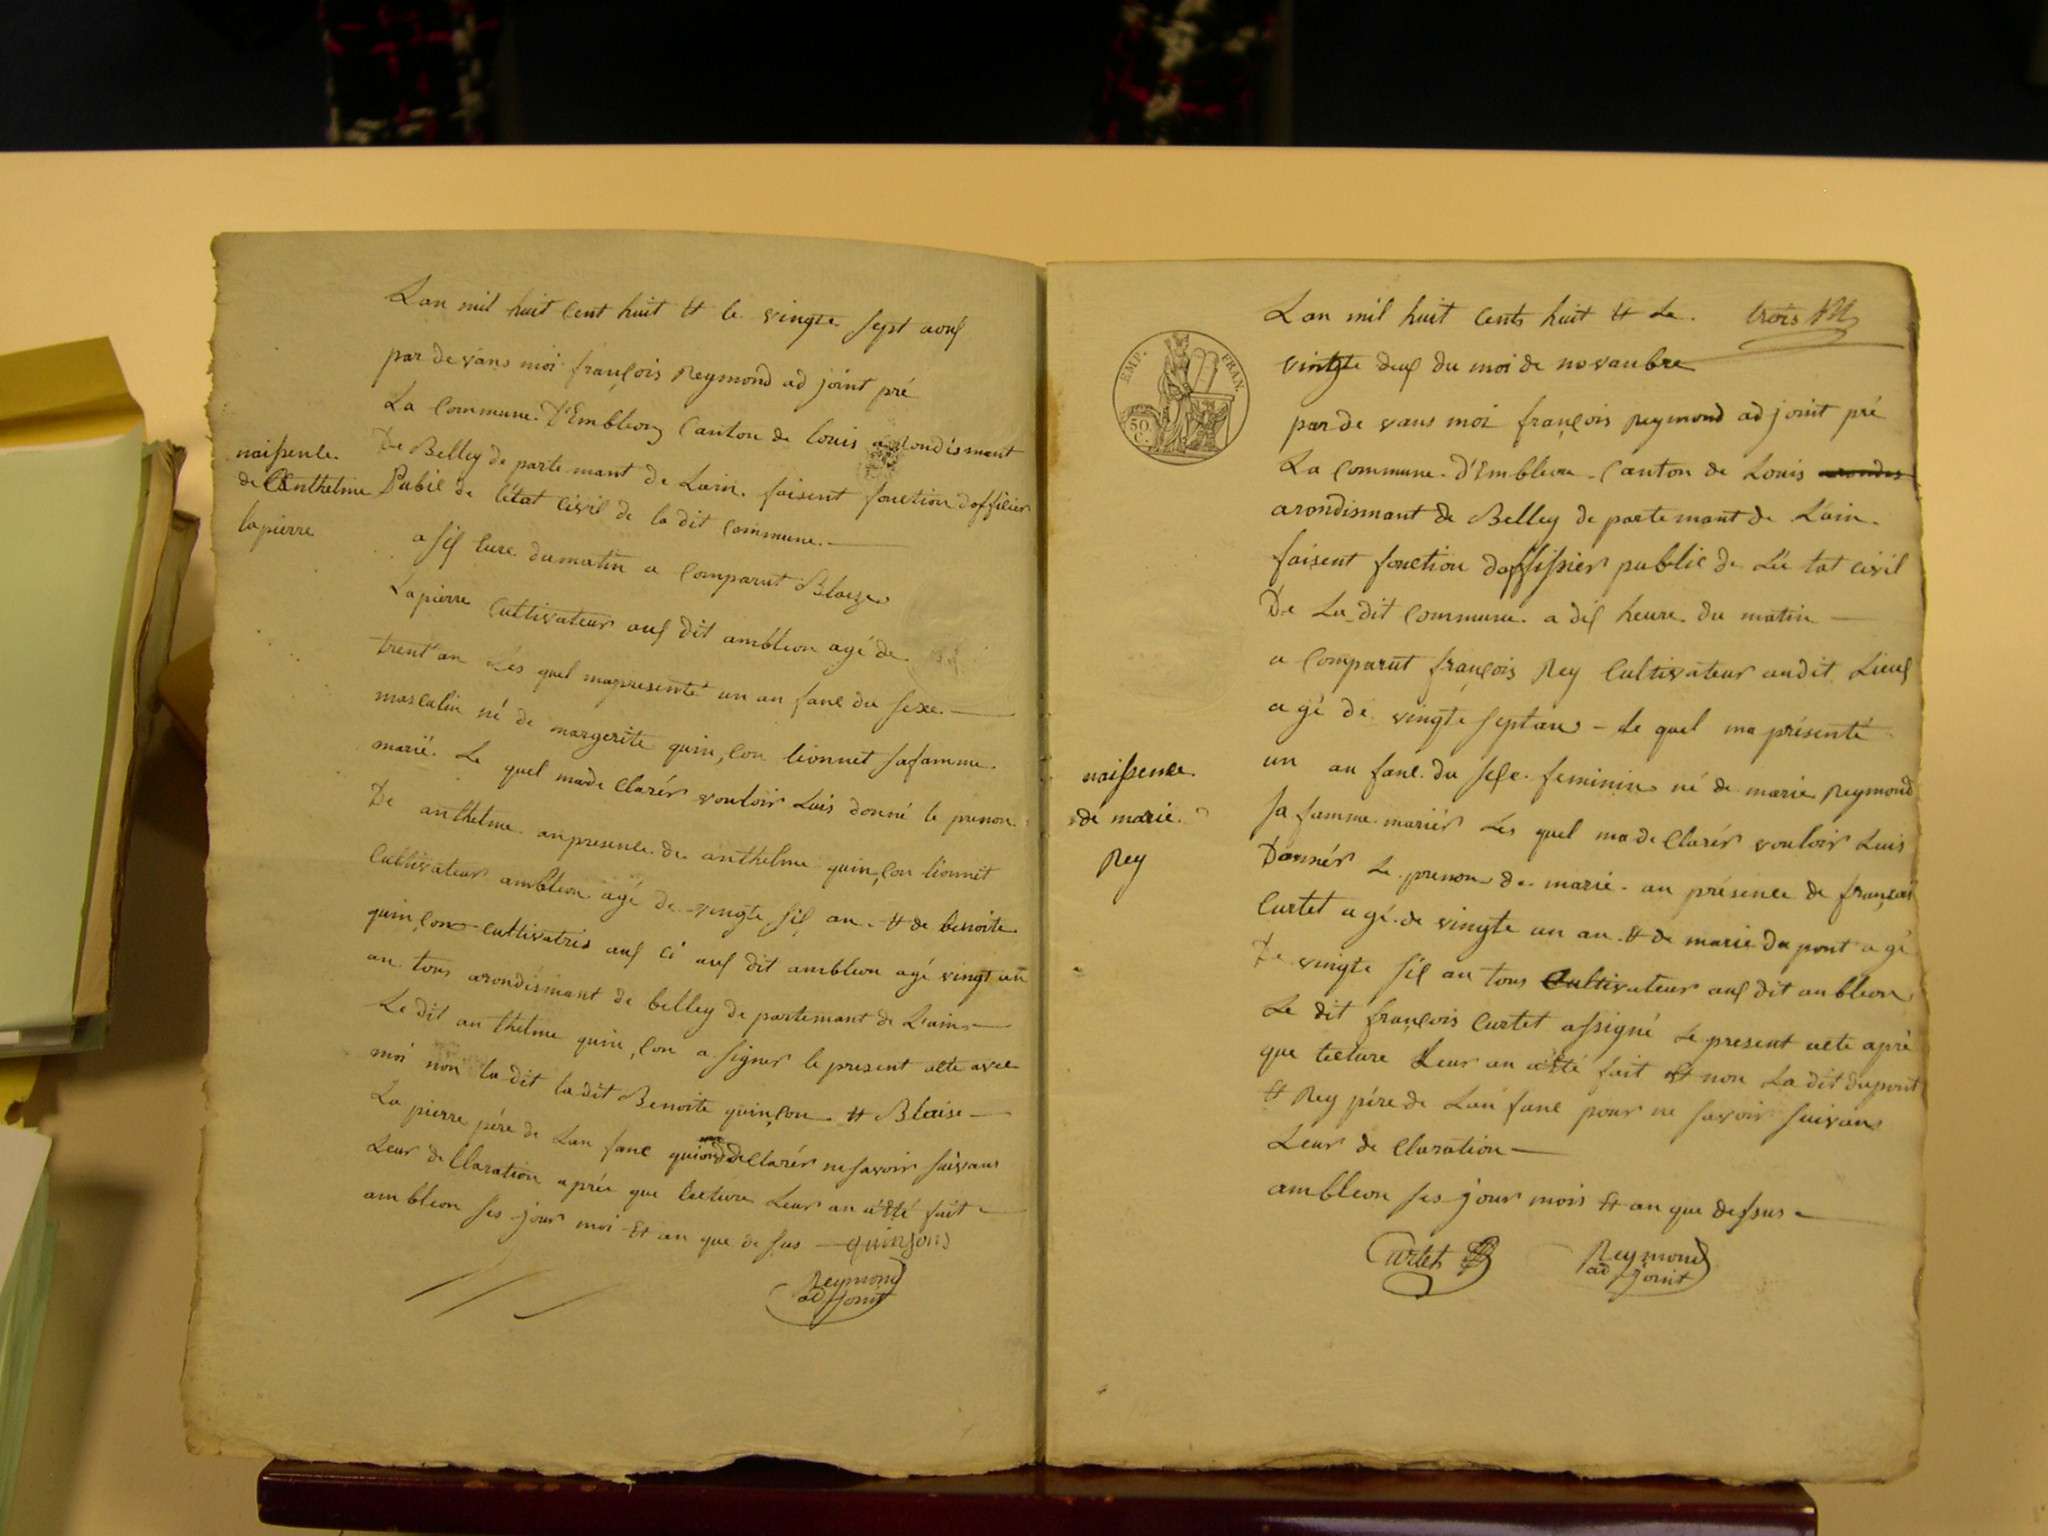 Lan mil huit Cent huit et le vingte sept aous
par devans moi françois Reymond ad joint pré
La Commune D'Embleon Canton de louis arondismant
De Belley de parte mant de Lain. faisent fonction dofficier
Pubic de létat civil de la dit Commune.
naissence.
de Anthelme
lapierre
a sis lure du matin a Comparut Blaize
Lapierre Cultivateur aus dit ambleon agé de
trent an Les quel mapresenté un an fanc du sexe
masculin né de margerite quin,con lionnet safamme
marié. Le quel made Clarér vouloir Luis donné le prenon
De anthelme anpresence de anthelme quin,con lionnet
Cultivateur ambleon agé de vingte sis an. et de benoite
quin,con cultivatris aus ci aus dit ambleon agé vingt un
an tous arondismant de belley de partemant de Lain
Le dit an thelme quin,con a signer le present acte avec
moi non la dit la dit Benoite quinçon et Blaise
La pierre pére de Lan fanc qui de Clarér ne savoir suivans
Leur de Claration aprée que lecture Leur an a été fait
ambleon ses jour moi et an que de sus quinsons
Reymond
ad joint
Lan mil huit Cents huit et Le. trois
vingte deus du moi de novanbre
EMP. FRAN.
50
C.
par de vans moi françois Reymond ad joint pré
La Commune D'Embleon Canton de Louis arondis
arondismant de Belley de parte mant de Lain.
faisent fonction doffissier public de Lé tat civil
De La dit Commune. a dis heure du matin
a Comparut françois Rey Cultivateur audit Lieus
a gé de vingte septans - Le quel ma présenté
un an fanc. du sese. feminin né de marie Reymond
naissence.
de marie.
Rey
sa famme mariér Les quel ma de Clarér vouloir Luis
Donnér Le prenon de marie. an présence de françois
Curtet a gé de vingte un an. et de marie du pont a gé
De vingte sis an tous Cultivateur aus dit anbleon
Le dit françois Curtet assigné Le present acte apré
que lecture Leur an a été fait et non La dit dupont
et Rey pére de Lan fanc pour ne savoir suivans
Leur de Claration
ambleon ses jour mois et an que dessus
Curtet Reymond
ad joint